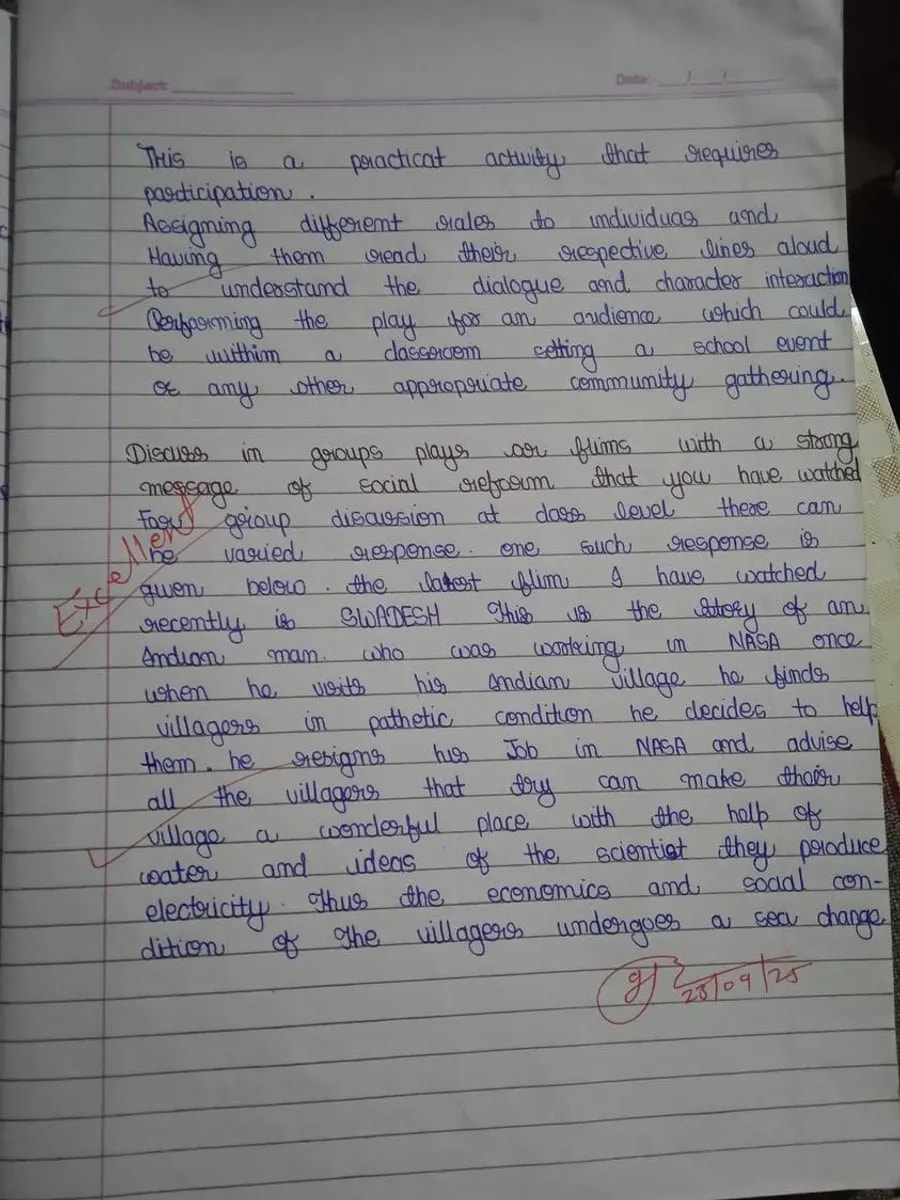 Subject:
Date: / /
This is a practicat activity that requires
participation.
Assigning different rales to individuas and
Having them read their respective lines aloud
to understand the dialogue and character interaction
Performing the play for an audience which could
be within a classroom setting a school event
or any other appropriate community gathering.
Discuss in groups plays or flims with a strong
message of social reform that you have watched
For group discussion at class level there can
Excellent
be varied response. one such response is
given below. the latest flim I have watched
recently is SWADESH This is the story of an
Indian man. who was working in NASA once
when he visits his Indian village he finds
villagers in pathetic condition he decides to help
them. he resigns his Job in NASA and advise
all the villagers that try can make their
village a wonderful place with the help of
water and ideas of the scientist they produce
electricity. Thus the economics and social con-
dition of the villagers undergoes a sea change
23/09/25